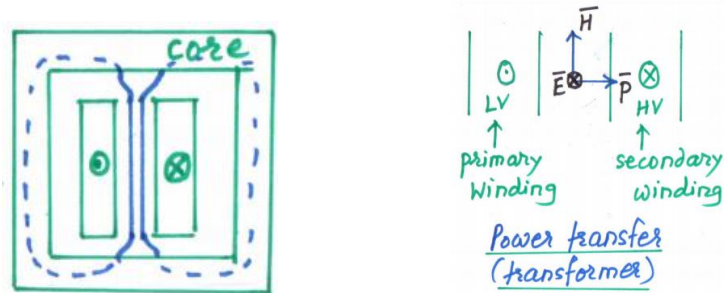 core
H
E
P
LV
HV
primary
winding
secondary
winding
Power transfer
(transformer)